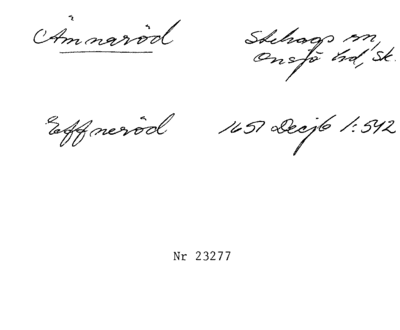 Ämnaröd Stehags sn,
Onsjö hd, Sk.
Effneröd 1651 Decjb 1:542
Nr 23277